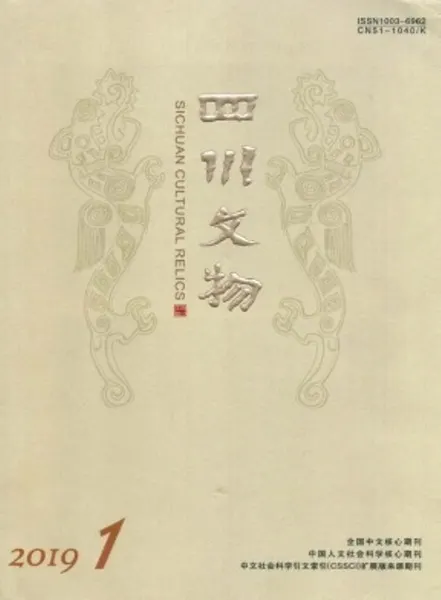 ISSN1003-6962
CN51-1040/K
四川文物
SICHUAN CULTURAL RELICS
2019 1
全国中文核心期刊
中国人文社会科学核心期刊
中文社会科学引文索引(CSSCI)扩展版来源期刊